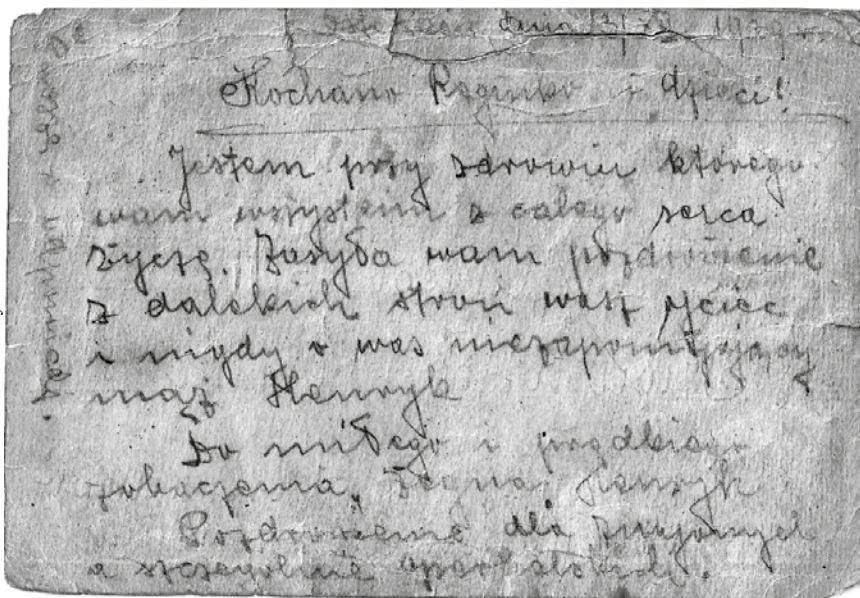 dnia 13/12 1939 r.
Kochano Reginko i dzieci!
Jestem przy zdrowiu którego
wam wszystkim z całego serca
życzę. Zasyła wam pozdrowienie
z dalekich stron wasz ojciec
i nigdy o was niezapominający
mąż Henryk
Do miłego i prędkiego
zobaczenia, Żegna Henryk
Pozdrowienie dla znajomych
a szczególnie